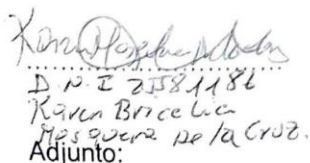 ..........................................
D.N.I 27581186
Karen Bricelia
Mosquera De la Cruz.
Adjunto: